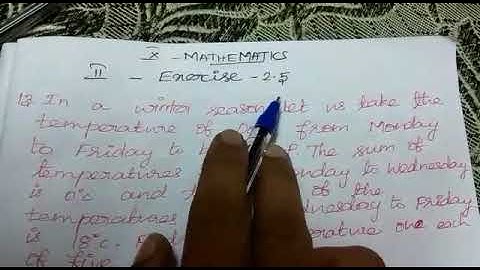 X - MATHEMATICS
II - Exercise - 2.5
12. In a winter season let us take the
temperature of from Monday
to Friday to be The sum of
temperatures Monday to Wednesday
is 0°C and of the
temperatures Wednesday to Friday
is 18°C. temperature one each
of five